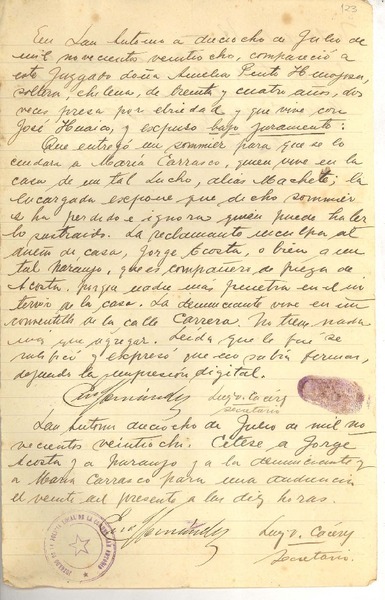 123
En San Antonio a dieciocho de Julio de
mil novecientos veintiocho, compareció a
este Juzgado doña Amelia Pinto Hinojosa,
soltera, chilena, de treinta y cuatro años, dos
veces presa por ebriedad y que vive con
José Huaico, y expuso bajo juramento:
Que entregó un sommier para que se lo
cuidara a María Carrasco, quien vive en la
casa de un tal Lucho, alias Machete; la
encargada expone que dicho sommier
se ha perdido e ignora quien puede haber
lo sustraido. La reclamante inculpa al
dueño de casa, Jorge Acosta, o bien a un
tal Naranjo, que es compañero de pieza de
Acosta, porque nadie mas penetra en el in
terior de la casa. La denunciante vive en un
conventillo de la calle Carrera. No tiene nada
mas que agregar. Leida que le fué se
ratificó y expresó que no sabía firmar,
dejando la impresión digital.
Secretario
San Antonio dieciocho de Julio de mil no
vecientos veintiocho. Cítese a Jorge
Acosta y a Naranjo y a la denunciante y
a María Carrasco para una audiencia
el veinte del presente a las diez horas.
Secretario
JUZGADO DE POLICIA LOCAL DE LA COMUNA SAN ANTONIO